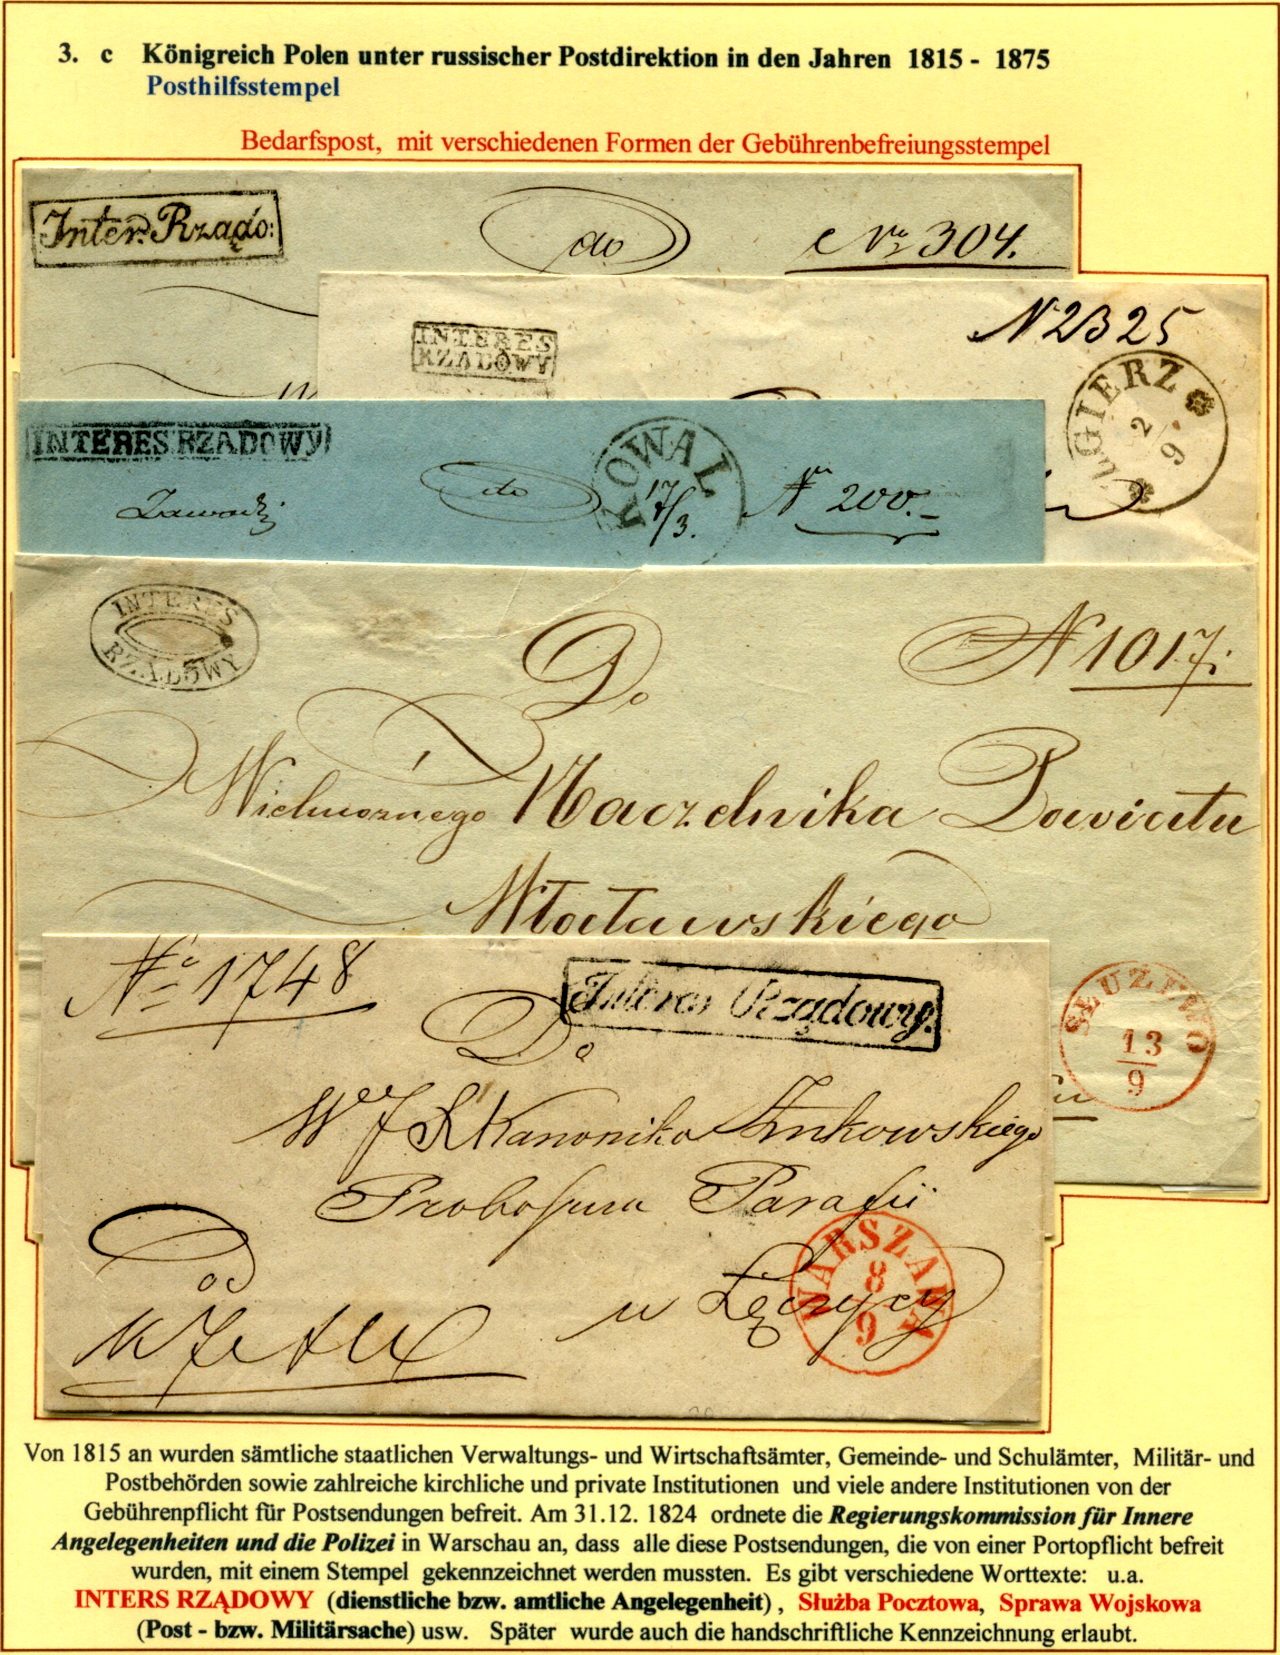 3. c Königreich Polen unter russischer Postdirektion in den Jahren 1815 - 1875
Posthilfsstempel
Bedarfspost, mit verschiedenen Formen der Gebührenbefreiungsstempel
Inter. Rządo:
do
No 304.
INTERES
RZADOWY
N 2325
ZGIERZ
2
9
INTERES RZADOWY
do
KOWAL
17/3.
N 200.-
INTERES
RZADOWY
Do
N 1017.
Wielmożnego Naczelnika Powiatu
Włocławskiego
SŁUZEWO
13
9
No 1748
Interes Rządowy.
Do
W J X Kanonika
Proboszcza Parafii
w Łęczycy
WARSZAWA
8
9
Od
Von 1815 an wurden sämtliche staatlichen Verwaltungs- und Wirtschaftsämter, Gemeinde- und Schulämter, Militär- und
Postbehörden sowie zahlreiche kirchliche und private Institutionen und viele andere Institutionen von der
Gebührenpflicht für Postsendungen befreit. Am 31.12. 1824 ordnete die Regierungskommission für Innere
Angelegenheiten und die Polizei in Warschau an, dass alle diese Postsendungen, die von einer Portopflicht befreit
wurden, mit einem Stempel gekennzeichnet werden mussten. Es gibt verschiedene Worttexte: u.a.
INTERS RZĄDOWY (dienstliche bzw. amtliche Angelegenheit) , Służba Pocztowa, Sprawa Wojskowa
(Post - bzw. Militärsache) usw. Später wurde auch die handschriftliche Kennzeichnung erlaubt.